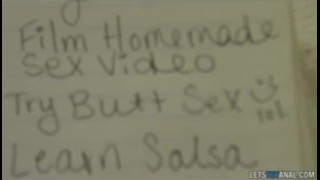 Film Homemade
Sex Video
Try Butt Sex
Learn Salsa
LETSTRYANAL.COM